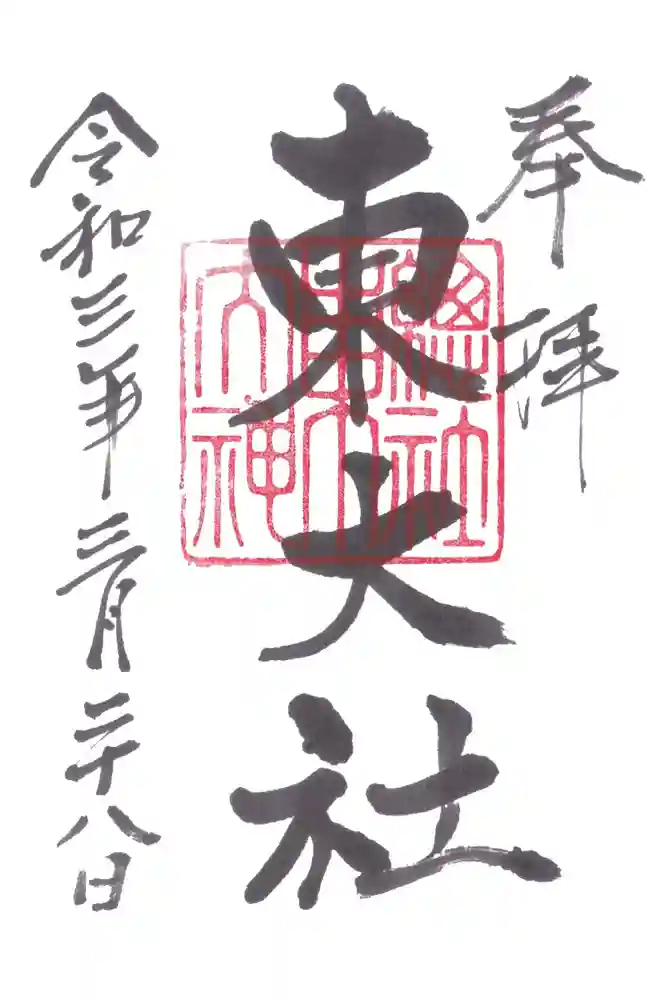 奉拝
東大社
總社東大社大神
令和三年三月二十八日